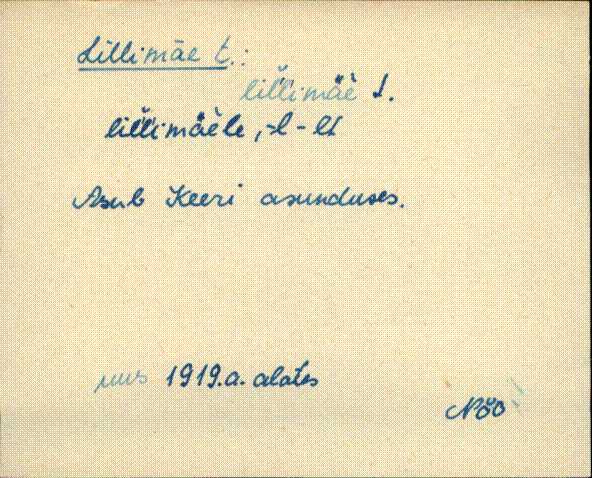 Lillimäe t.:
lil̆limäè t.
lil̆limäèle, -l -lt
Asub Keeri asunduses.
uus 1919.a. alates
Nõo